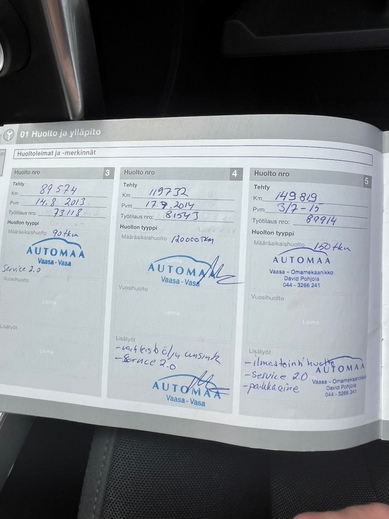 01 Huolto ja ylläpito
Huoltoleimat ja -merkinnät
Huolto nro 3
Tehty
Km 89574
Pvm 14.8 2013
Työtilaus nro: 73118
Huollon tyyppi
Määräaikaishuolto 90tkm
AUTOMAA
Vaasa - Vasa
Service 2.0
Vuosihuolto
Leima
Lisätyöt
Leima
Huolto nro 4
Tehty
Km 119732
Pvm 17.9.2014
Työtilaus nro: 81543
Huollon tyyppi
Määräaikaishuolto 120000km
AUTOMAA
Vaasa - Vasa
Vuosihuolto
Leima
Lisätyöt
- Service 2.0
AUTOMAA
Vaasa - Vasa
Huolto nro 5
Tehty
Km 149819
Pvm 3/7-15
Työtilaus nro: 89914
Huollon tyyppi
Määräaikaishuolto 150tkm
AUTOMAA
Vaasa - Omamekaanikko
David Pohjola
044 - 3266 241
Vuosihuolto
Leima
Lisätyöt
- ilmastointihuolto
- Service 2.0
AUTOMAA
Vaasa - Omamekaanikko
David Pohjola
044 - 3266 241